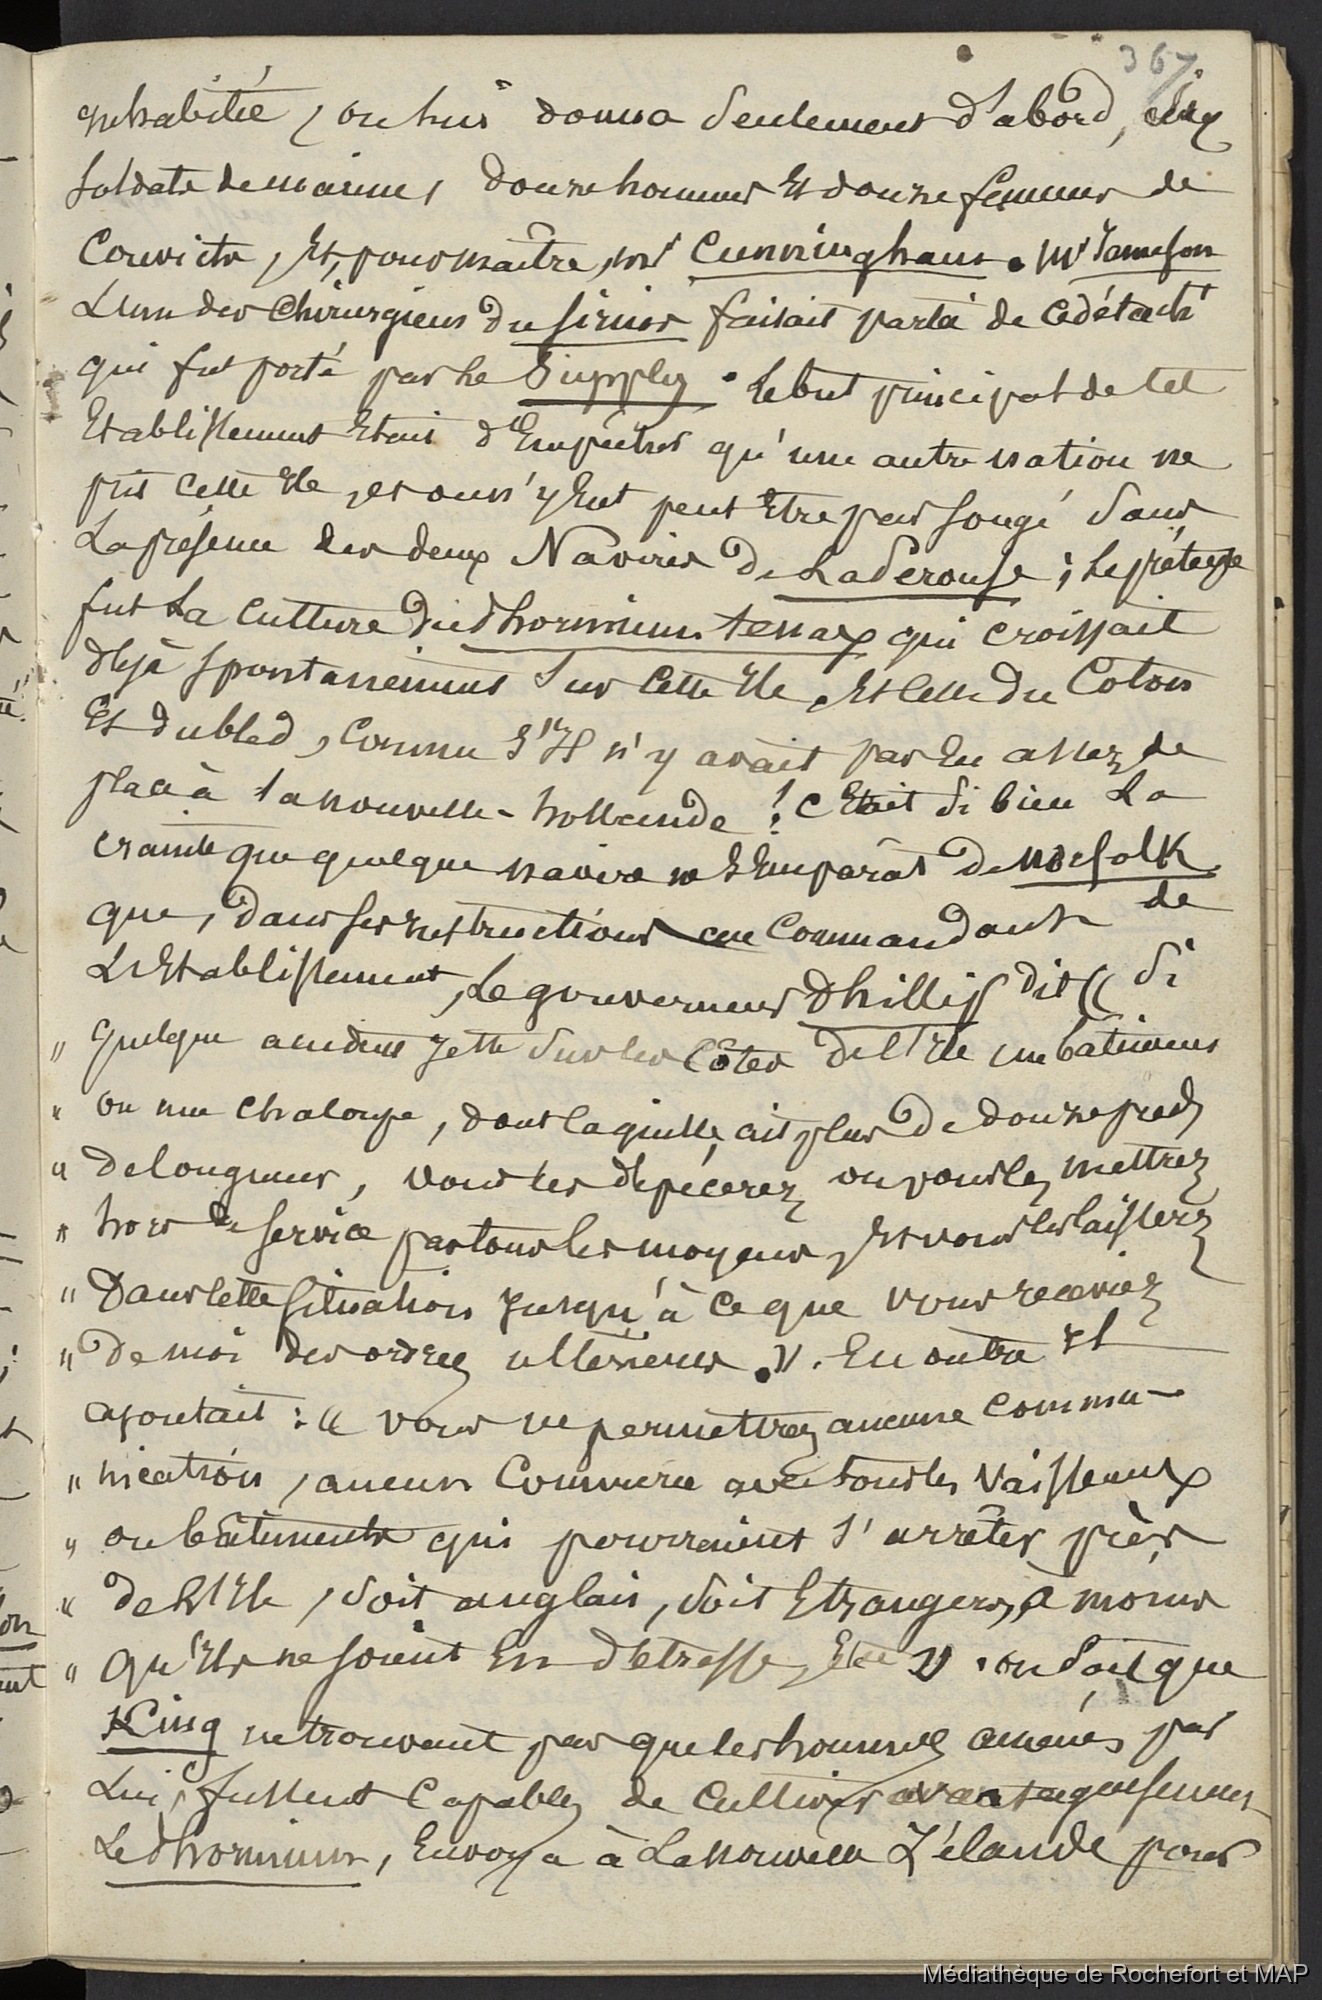 367
inhabitée, on lui donna seulement d'abord, six
soldats de marine, douze hommes et douze femmes de
Convicts, Et, pour maître, mr Cunningham. Mr Jameson
L'un des chirurgiens du Sirius faisait partie de ce détacht
qui fut porté par le Supply. Le but principal de cet
Etablissement Etait d'Empêcher qu'une autre nation ne
prit cette Ile, et on n'y Eut peut Etre pas songé sans
La présence des deux Navires De LaPérouse ; le prétexte
fut La culture du Phormium tenax qui croissait
déjà spontanément sur cette Ile, Et celle du Coton
Et du bled, comme S'Il n'y avait pas Eu assez de
place à la nouvelle-hollande ! C'Etait si bien La
crainte que quelque navire ne s'Emparât De Norfolk
que, dans ses instructions au Commandant de
L'Etablissement, Le gouverneur Phillip dit « Si
" quelque accident jette sur les Côtes de l'Ile un bâtiment
" ou une chaloupe, dont la quille ait plus de douze pieds
" de longueur, vous les dépécerez ou vous les mettrez
" hors de service par tous les moyens, Et vous les laisserez
" Dans cette situation jusqu'à ce que vous receviez
" De moi des ordres ultérieurs. ». En outre Il
ajoutait : « vous ne permettrez aucune commu-
" nication, aucun Commerce avec tous les Vaisseaux
" ou bâtiments qui pourraient s'arrêter près
" de L'Ile, soit anglais, soit Etrangers, à moins
" qu'Ils ne soient En détresse, Etc ». on sait que
King ne trouvant pas que les hommes amenés par
Lui, fussent capables de cultiver avantageusement
Le Phormium, Envoya à La nouvelle Zélande pour
Médiathèque de Rochefort et MAP